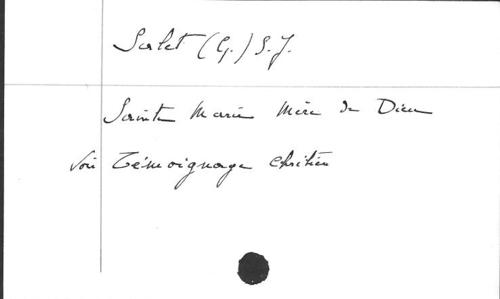 Salet (G.) S.J.
Sainte Marie Mère de Dieu
Voir Témoignage Chrétien